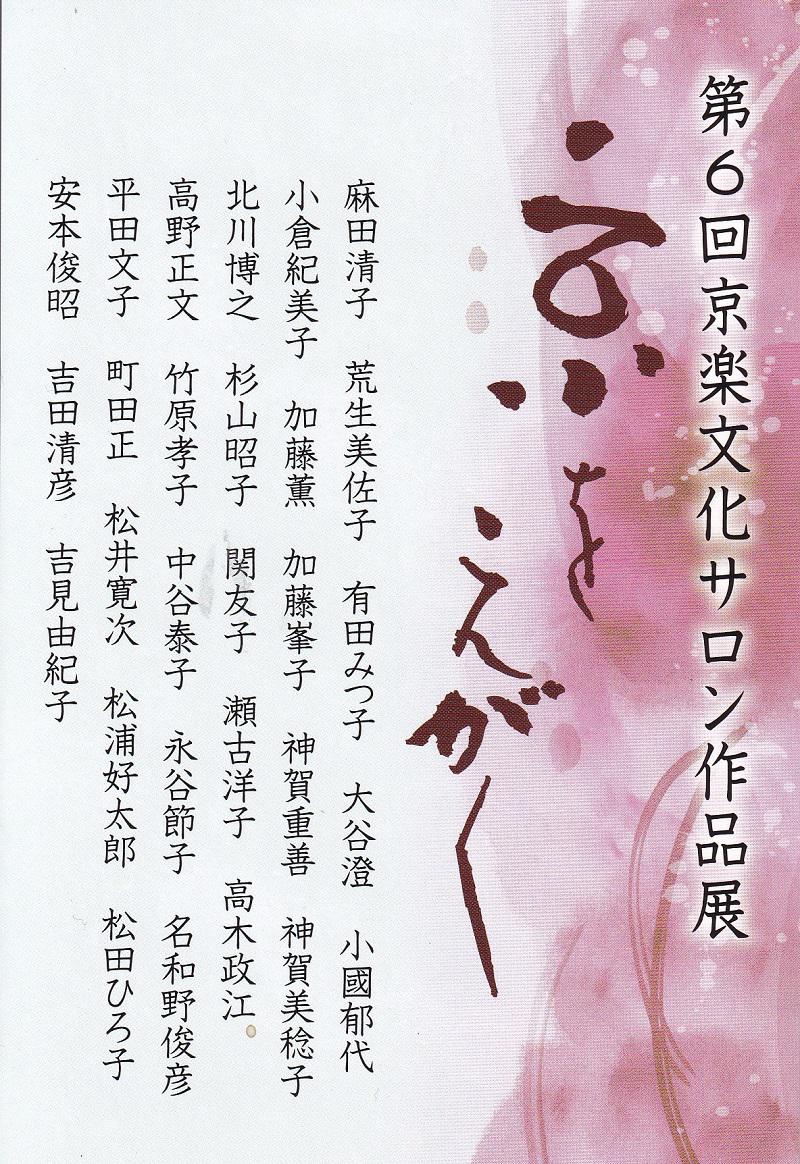 第6回京楽文化サロン作品展
京を
えがく
麻田清子　荒生美佐子　有田みつ子　大谷澄　小國郁代
小倉紀美子　加藤薫　加藤峯子　神賀重善　神賀美稔子
北川博之　杉山昭子　関友子　瀬古洋子　高木政江
高野正文　竹原孝子　中谷泰子　永谷節子　名和野俊彦
平田文子　町田正　松井寛次　松浦好太郎　松田ひろ子
安本俊昭　吉田清彦　吉見由紀子